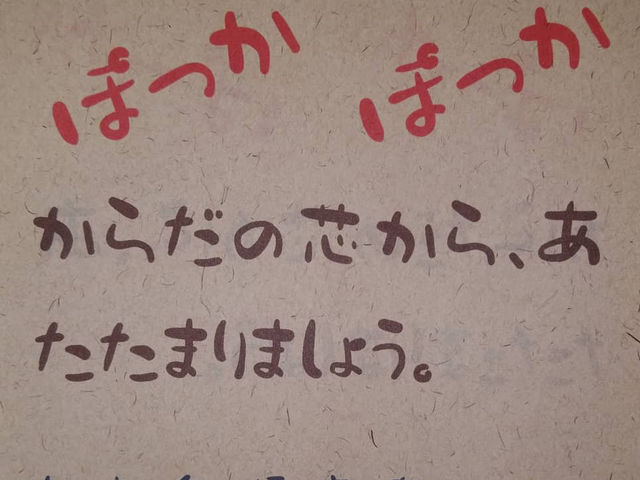 ぽっか ぽっか
からだの芯から、あ
たたまりましょう。